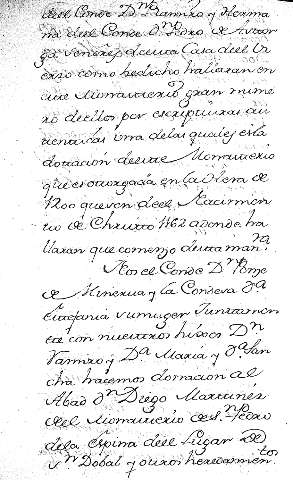 del Conde Dⁿ Ramiro y Herma
na del Conde Dⁿ Pedro de Astor
ga señores de esta Casa del Vi
erzo como he dicho hallaran en
este Monasterio gran nume
ro de ellos por escripturas au
tenticas una de las quales es la
dotacion de este Monasterio
que es otorgada en la Hera de
1200 que es en el Nacimien
to de Christo 1162 a donde ha
llaran que comenzo de esta manᵃ
Nos el Conde Dⁿ Ponze
de Minerva y la Condesa Dᵃ
Estefania su muger Juntamen
te con nuestros hijos Dⁿ
Ramiro y Dᵃ Maria y Dᵃ San
cha hacemos donacion al
Abad Dⁿ Diego Martinez
del Monasterio de Sⁿ Pedro
de la Espina del Lugar de
Sⁿ Dobal y otros heredamienᵗᵒˢ